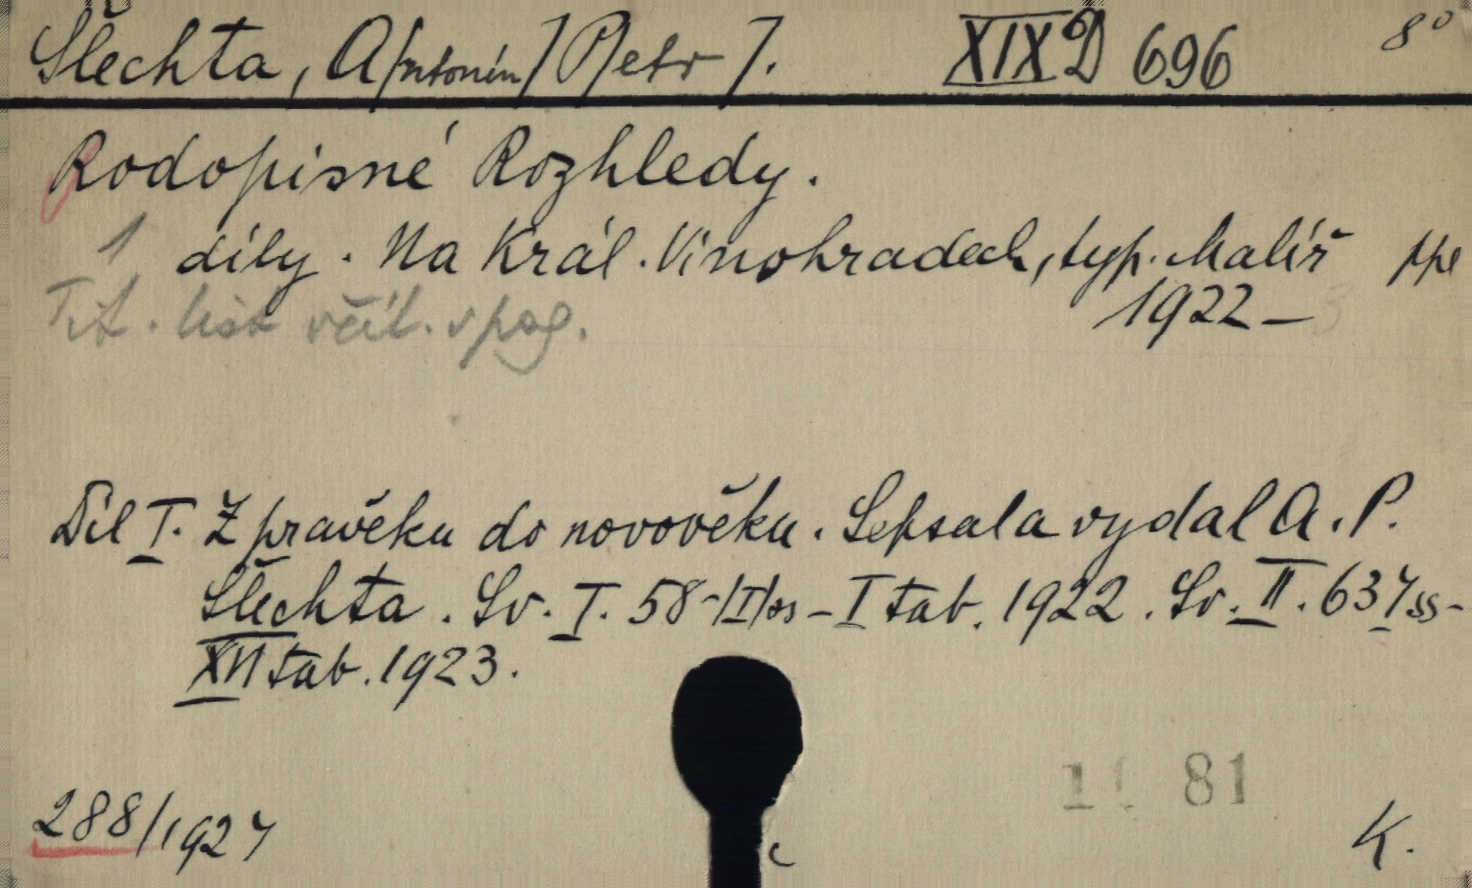 Šlechta, A[ntonín] P[etr].
XIX D 696
8°
Rodopisné Rozhledy.
1 díly. Na Král. Vinohradech, typ. Malíř
1922–3
Tit. list včíl. v pag.
Díl I. Z pravěku do novověku. Sepsal a vydal A. P.
Šlechta. Sv. I. 58–/I/ – I tab. 1922. Sv. II. 63
XVI tab. 1923.
81
288/1927
K.